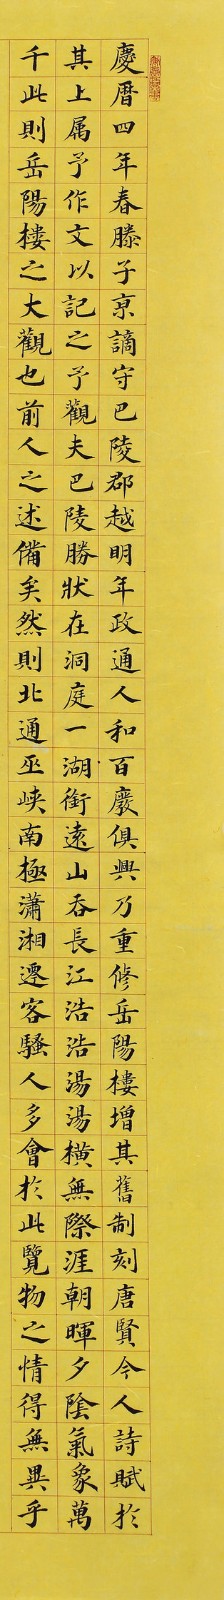 慶曆四年春滕子京謫守巴陵郡越明年政通人和百廢俱興乃重修岳陽樓增其舊制刻唐賢今人詩賦於
其上属予作文以記之予觀夫巴陵勝狀在洞庭一湖銜遠山吞長江浩浩湯湯橫無際涯朝暉夕陰氣象萬
千此則岳陽樓之大觀也前人之述備矣然則北通巫峽南極瀟湘遷客騷人多會於此覽物之情得無異乎